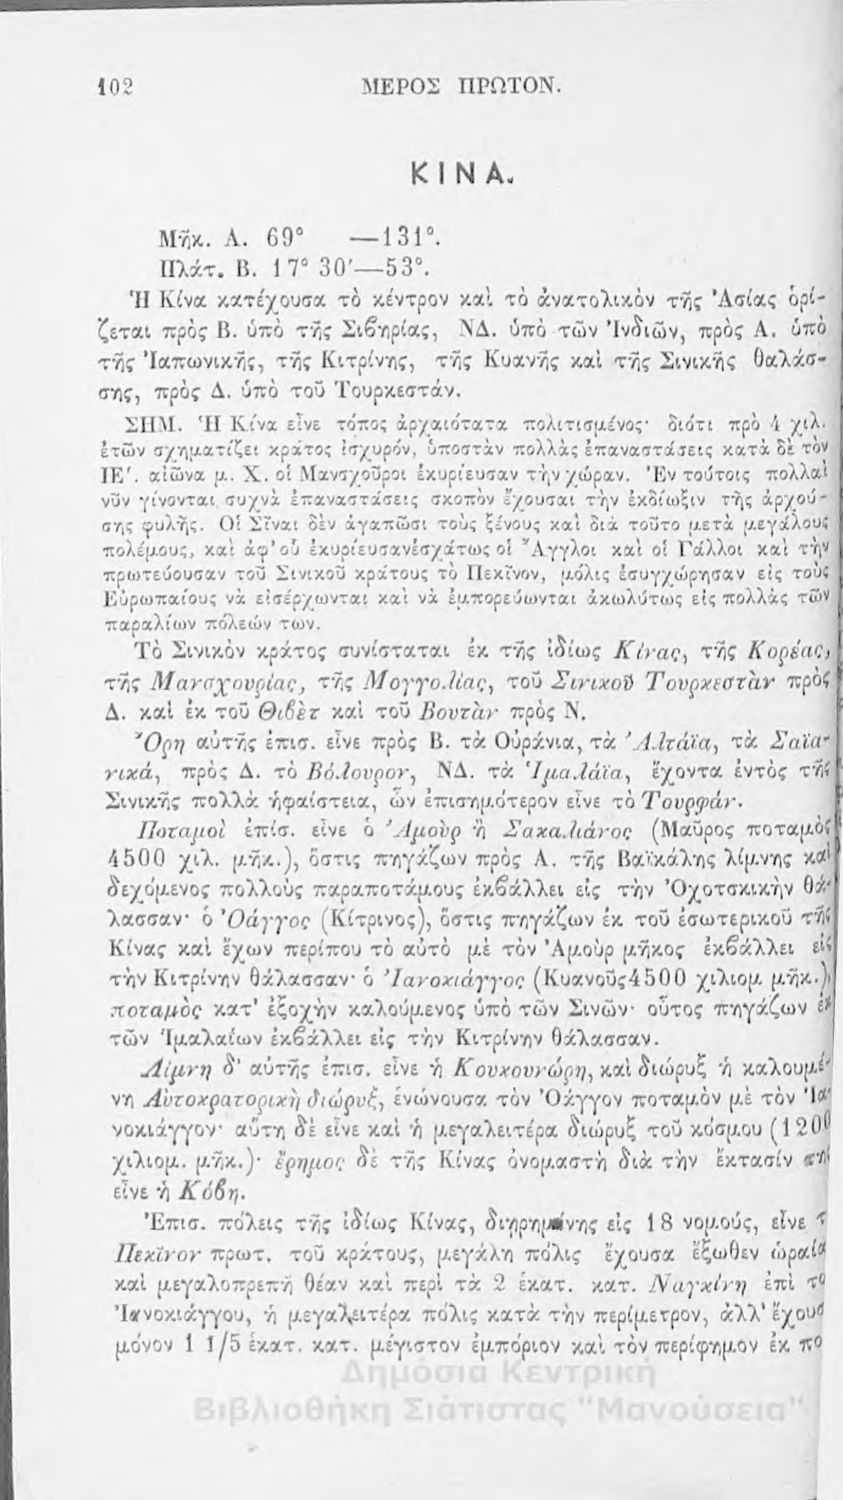 102 ΜΕΡΟΣ ΠΡΩΤΟΝ.
ΚΙΝΑ.
Μῆκ. Α. 69° —131°.
Πλάτ. Β. 17° 30′—53°.
Ἡ Κίνα κατέχουσα τὸ κέντρον καὶ τὸ ἀνατολικὸν τῆς Ἀσίας ὁρί-
ζεται πρὸς Β. ὑπὸ τῆς Σιβηρίας, ΝΔ. ὑπὸ τῶν Ἰνδιῶν, πρὸς Α. ὑπὸ
τῆς Ἰαπωνικῆς, τῆς Κιτρίνης, τῆς Κυανῆς καὶ τῆς Σινικῆς θαλάσ-
σης, πρὸς Δ. ὑπὸ τοῦ Τουρκεστάν.
ΣΗΜ. Ἡ Κίνα εἶνε τόπος ἀρχαιότατα πολιτισμένος· διότι πρὸ 4 χιλ.
ἐτῶν σχηματίζει κράτος ἰσχυρόν, ὑποστὰν πολλὰς ἐπαναστάσεις κατὰ δὲ τὸν
ΙΕ′. αἰῶνα μ. Χ. οἱ Μανσχοῦροι ἐκυρίευσαν τὴν χώραν. Ἐν τούτοις πολλαὶ
νῦν γίνονται συχνὰ ἐπαναστάσεις σκοπὸν ἔχουσαι τὴν ἐκδίωξιν τῆς ἀρχού-
σης φυλῆς. Οἱ Σῖναι δὲν ἀγαπῶσι τοὺς ξένους καὶ διὰ τοῦτο μετὰ μεγάλους
πολέμους, καὶ ἀφ' οὗ ἐκυρίευσανἐσχάτως οἱ Ἄγγλοι καὶ οἱ Γάλλοι καὶ τὴν
πρωτεύουσαν τοῦ Σινικοῦ κράτους τὸ Πεκῖνον, μόλις ἐσυγχώρησαν εἰς τοὺς
Εὐρωπαίους νὰ εἰσέρχωνται καὶ νὰ ἐμπορεύωνται ἀκωλύτως εἰς πολλὰς τῶν
παραλίων πόλεών των.
Τὸ Σινικὸν κράτος συνίσταται ἐκ τῆς ἰδίως Κίνας, τῆς Κορέας,
τῆς Μανσχουρίας, τῆς Μογγολίας, τοῦ Σινικοῦ Τουρκεστὰν πρὸς
Δ. καὶ ἐκ τοῦ Θιβὲτ καὶ τοῦ Βουτὰν πρὸς Ν.
Ὄρη αὐτῆς ἐπισ. εἶνε πρὸς Β. τὰ Οὐράνια, τὰ Ἀλτάϊα, τὰ Σαϊα-
νικά, πρὸς Δ. τὸ Βόλουρον, ΝΔ. τὰ Ἱμαλάϊα, ἔχοντα ἐντὸς τῆς
Σινικῆς πολλὰ ἡφαίστεια, ὧν ἐπισημότερον εἶνε τὸ Τουρφάν.
Ποταμοὶ ἐπίσ. εἶνε ὁ Ἀμοὺρ ἢ Σακαλιάνος (Μαῦρος ποταμὸς
4500 χιλ. μῆκ.), ὅστις πηγάζων πρὸς Α. τῆς Βαϊκάλης λίμνης καὶ
δεχόμενος πολλοὺς παραποτάμους ἐκβάλλει εἰς τὴν Ὀχοτσκικὴν θά-
λασσαν· ὁ Ὀάγγος (Κίτρινος), ὅστις πηγάζων ἐκ τοῦ ἐσωτερικοῦ τῆς
Κίνας καὶ ἔχων περίπου τὸ αὐτὸ μὲ τὸν Ἀμοὺρ μῆκος ἐκβάλλει εἰς
τὴν Κιτρίνην θάλασσαν· ὁ Ἰανοκιάγγος (Κυανοῦς4500 χιλιομ μῆκ.),
ποταμὸς κατ' ἐξοχὴν καλούμενος ὑπὸ τῶν Σινῶν· οὗτος πηγάζων ἐκ
τῶν Ἱμαλαΐων ἐκβάλλει εἰς τὴν Κιτρίνην θάλασσαν.
Λίμνη δ' αὐτῆς ἐπισ. εἶνε ἡ Κουκουνώρη, καὶ διώρυξ ἡ καλουμέ-
νη Αὐτοκρατορικὴ διώρυξ, ἑνώνουσα τὸν Ὀάγγον ποταμὸν μὲ τὸν Ἰα-
νοκιάγγον· αὕτη δὲ εἶνε καὶ ἡ μεγαλειτέρα διώρυξ τοῦ κόσμου (1200
χιλιομ. μῆκ.)· ἔρημος δὲ τῆς Κίνας ὀνομαστὴ διὰ τὴν ἔκτασίν της
εἶνε ἡ Κόβη.
Ἐπισ. πόλεις τῆς ἰδίως Κίνας, διῃρημένης εἰς 18 νομούς, εἶνε τ
Πεκῖνον πρωτ. τοῦ κράτους, μεγάλη πόλις ἔχουσα ἔξωθεν ὡραία
καὶ μεγαλοπρεπῆ θέαν καὶ περὶ τὰ 2 ἑκατ. κατ. Ναγκίνη ἐπὶ το
Ἰανοκιάγγου, ἡ μεγαλειτέρα πόλις κατὰ τὴν περίμετρον, ἀλλ' ἔχουσ
μόνον 1 1/5 ἑκατ. κατ. μέγιστον ἐμπόριον καὶ τὸν περίφημον ἐκ πο
Δημόσια Κεντρική
Βιβλιοθήκη Σιάτιστας "Μανούσεια"